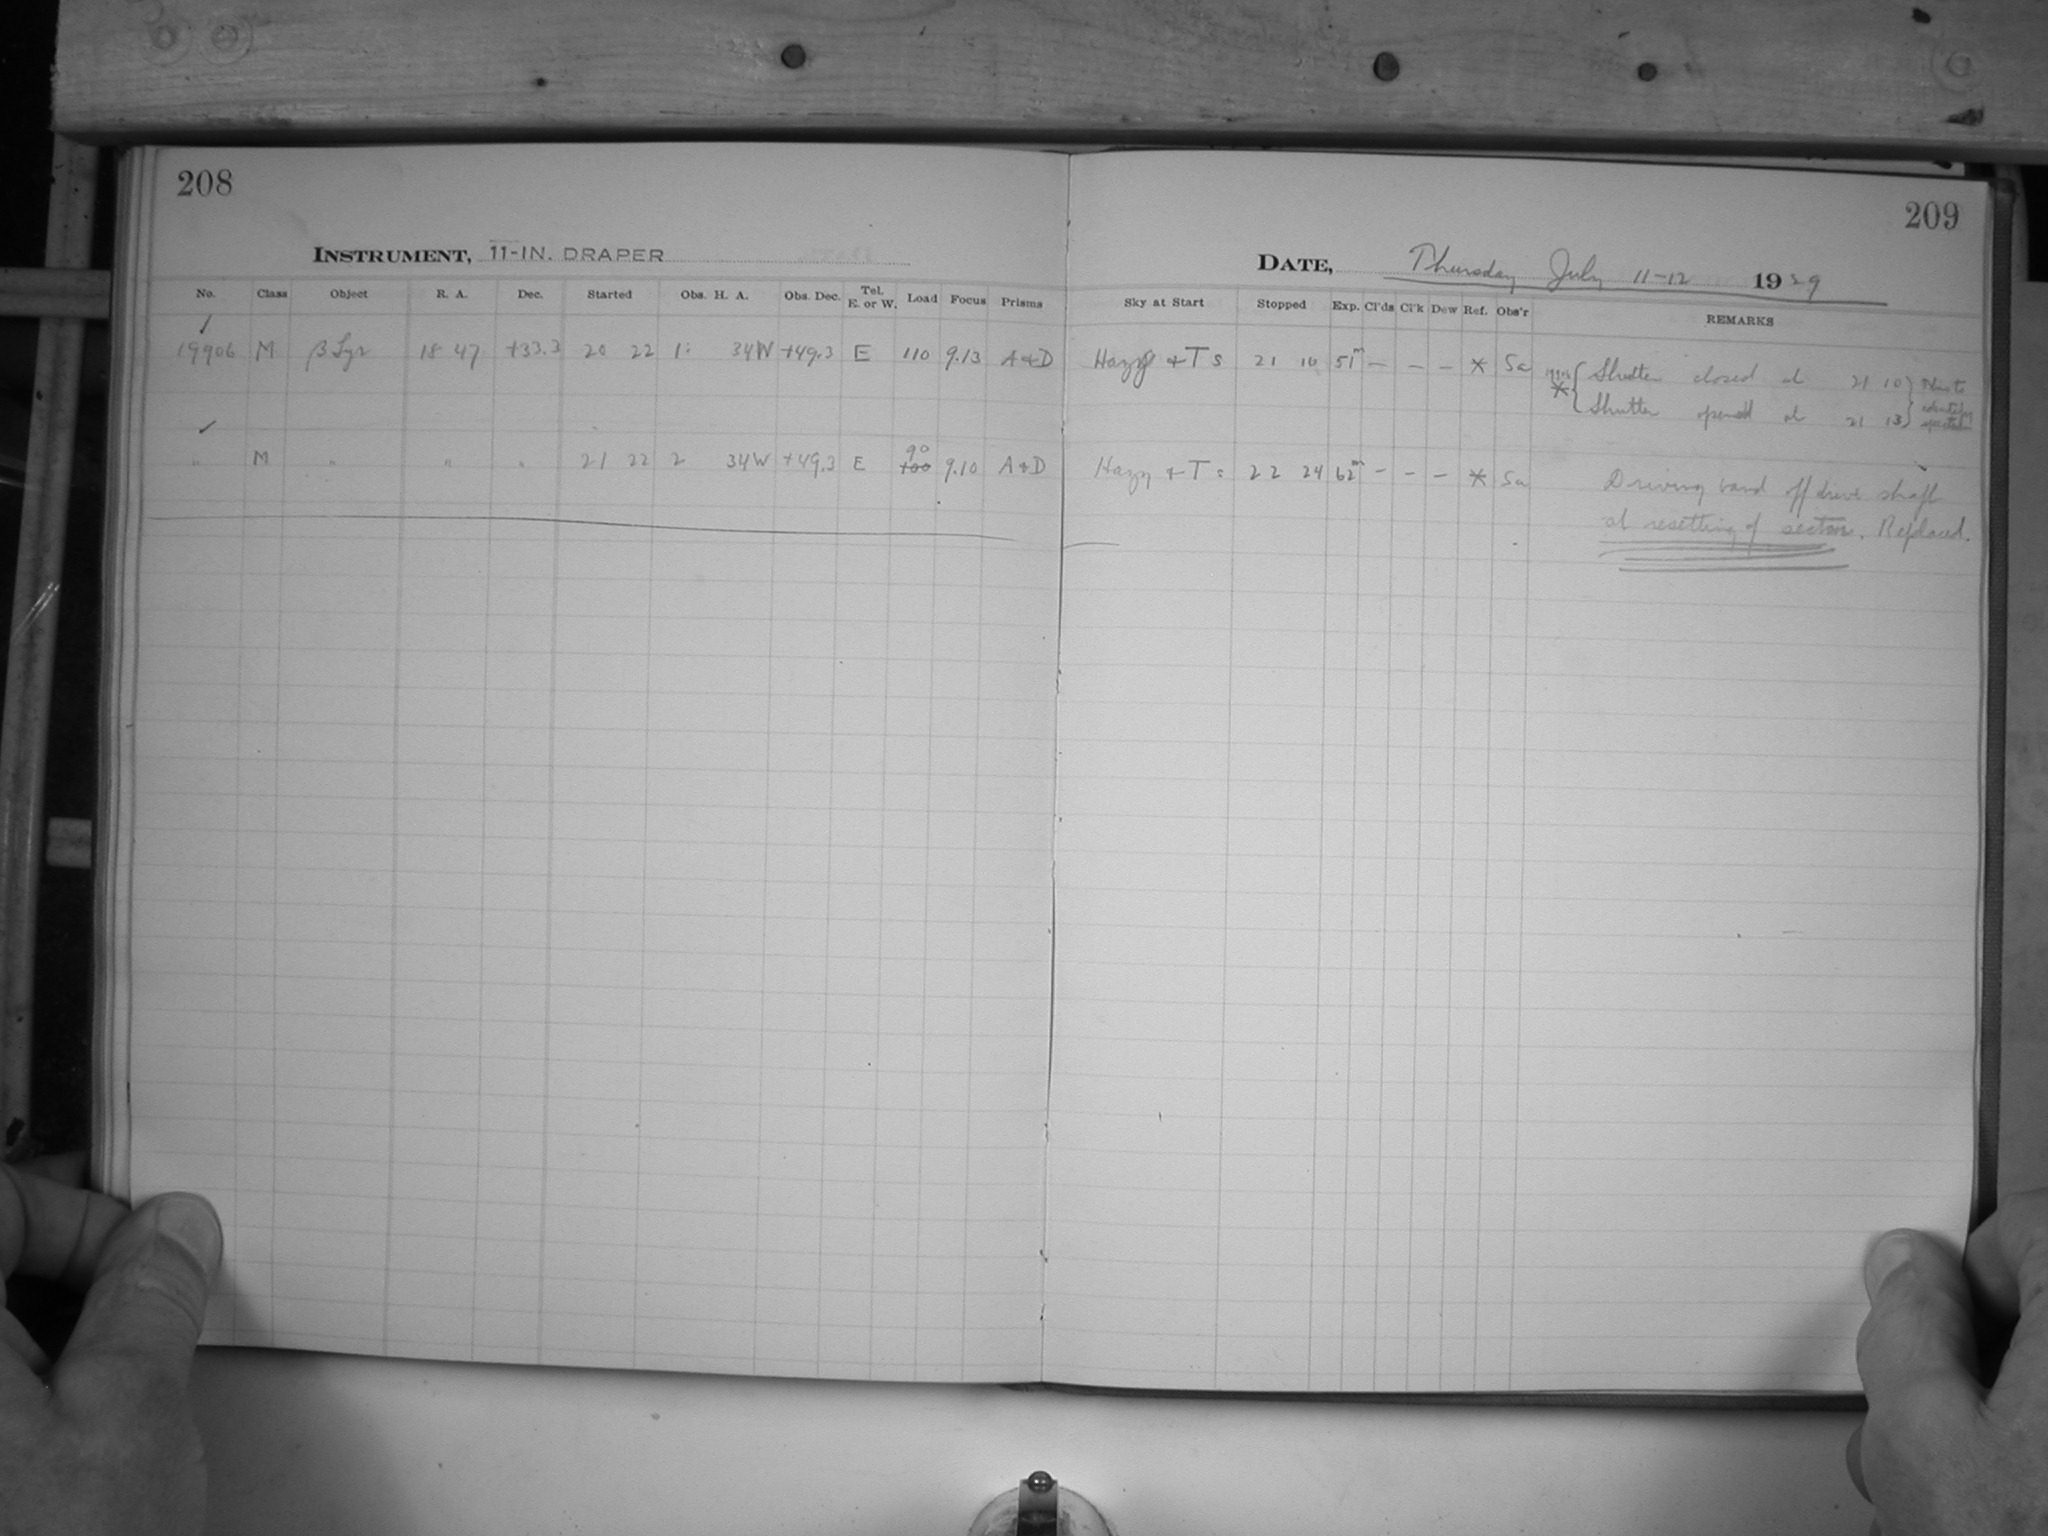 208
INSTRUMENT, 11-IN. DRAPER
No. Class Object R. A. Dec. Started Obs. H. A. Obs. Dec. Tel. E. or W. Load Focus Prisms
19906 M β Lyr 18 47 +33.3 20 22 1: 34W +49.3 E 110 9.13 A+D
" M " " " 21 22 2 34W +49.3 E 90 100 9.10 A+D
209
DATE, Thursday July 11-12 1929
Sky at Start Stopped Exp. Cl'ds Cl'k Dew Ref. Obs'r REMARKS
Hazy + T s 21 10 51m — — — * Sa 19906 * { Shutter closed at 21 10 } This to
Shutter opened at 21 13 } identify
Hazy + T: 22 24 62m — — — * Sa Driving band off drive shaft
at resetting of sector. Replaced.